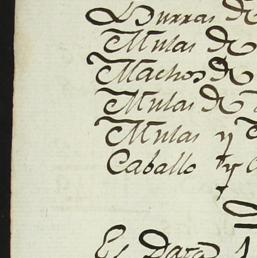 Burras de
Mulas de
Machos de
Mulas de
Mulas y
Caballo y
Es Data